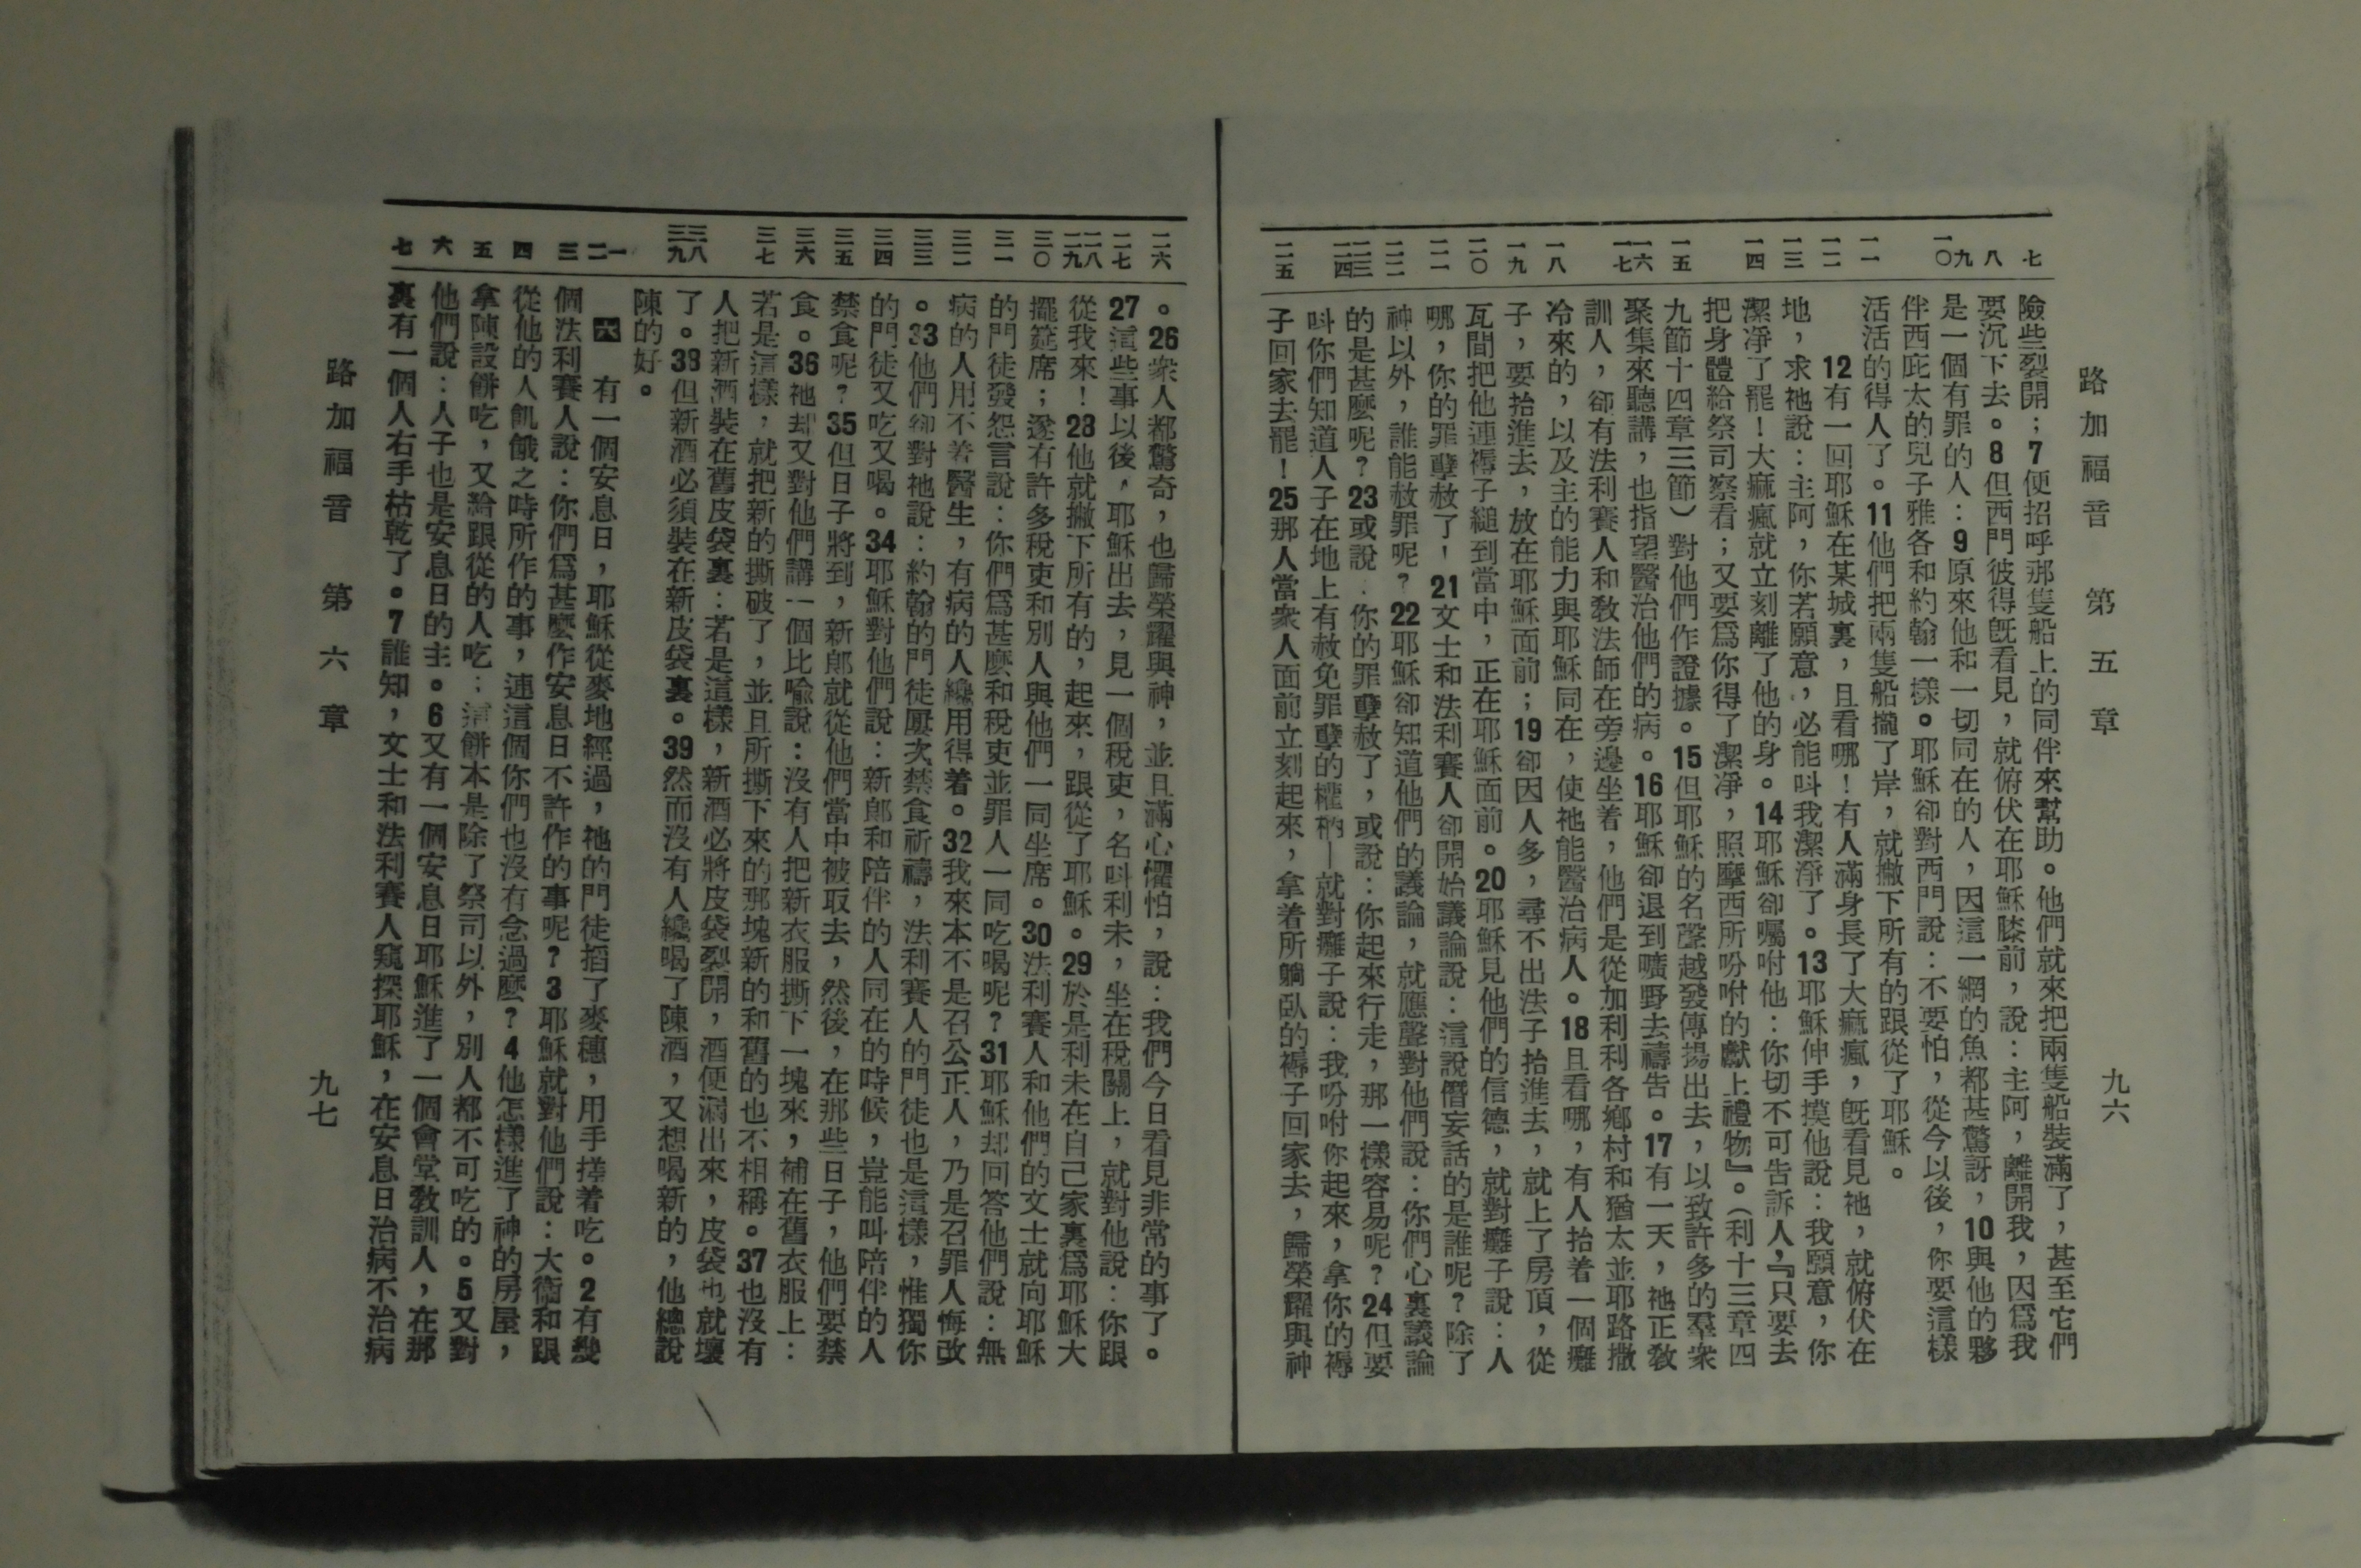 路加福音　第五章　九六
七
八
九
一〇
一一
一二
一三
一四
一五
一六
一七
一八
一九
二〇
二一
二二
二三
二四
二五
險些裂開；7便招呼那隻船上的同伴來幫助。他們就來把兩隻船裝滿了，甚至它們
要沉下去。8但西門彼得旣看見，就俯伏在耶穌膝前，說：主阿，離開我，因爲我
是一個有罪的人：9原來他和一切同在的人，因這一網的魚都甚驚訝，10與他的夥
伴西庇太的兒子雅各和約翰一樣。耶穌卻對西門說：不要怕，從今以後，你要這樣
活活的得人了。11他們把兩隻船攏了岸，就撇下所有的跟從了耶穌。
12有一回耶穌在某城裏，且看哪！有人滿身長了大痲瘋，旣看見祂，就俯伏在
地，求祂說：主阿，你若願意，必能叫我潔淨了。13耶穌伸手摸他說：我願意，你
潔凈了罷！大痲瘋就立刻離了他的身。14耶穌卻囑咐他：你切不可告訴人，『只要去
把身體給祭司察看；又要爲你得了潔凈，照摩西所吩咐的獻上禮物』。（利十三章四
九節十四章三節）對他們作證據。15但耶穌的名聲越發傳揚出去，以致許多的羣衆
聚集來聽講，也指望醫治他們的病。16耶穌卻退到曠野去禱告。17有一天，祂正敎
訓人，卻有法利賽人和敎法師在旁邊坐着，他們是從加利利各鄉村和猶太並耶路撒
冷來的，以及主的能力與耶穌同在，使祂能醫治病人。18且看哪，有人抬着一個癱
子，要抬進去，放在耶穌面前；19卻因人多，尋不出法子抬進去，就上了房頂，從
瓦間把他連褥子縋到當中，正在耶穌面前。20耶穌見他們的信德，就對癱子說：人
哪，你的罪孽赦了！21文士和法利賽人卻開始議論說：這說僭妄話的是誰呢？除了
神以外，誰能赦罪呢？22耶穌卻知道他們的議論，就應聲對他們說：你們心裏議論
的是甚麼呢？23或說：你的罪孽赦了，或說：你起來行走，那一樣容易呢？24但要
叫你們知道人子在地上有赦免罪孽的權柄—就對癱子說：我吩咐你起來，拿你的褥
子回家去罷！25那人當衆人面前立刻起來，拿着所躺臥的褥子回家去，歸榮耀與神
二六
二七
二八
二九
三〇
三一
三二
三三
三四
三五
三六
三七
三八
三九
一
二
三
四
五
六
七
。26衆人都驚奇，也歸榮耀與神，並且滿心懼怕，說：我們今日看見非常的事了。
27這些事以後，耶穌出去，見一個稅吏，名叫利未，坐在稅關上，就對他說：你跟
從我來！28他就撇下所有的，起來，跟從了耶穌。29於是利未在自己家裏爲耶穌大
擺筵席；遂有許多稅吏和別人與他們一同坐席。30法利賽人和他們的文士就向耶穌
的門徒發怨言說：你們爲甚麼和稅吏並罪人一同吃喝呢？31耶穌却回答他們說：無
病的人用不着醫生，有病的人纔用得着。32我來本不是召公正人，乃是召罪人悔改
。33他們卻對祂說：約翰的門徒屢次禁食祈禱，法利賽人的門徒也是這樣，惟獨你
的門徒又吃又喝。34耶穌對他們說：新郞和陪伴的人同在的時候，豈能叫陪伴的人
禁食呢？35但日子將到，新郞就從他們當中被取去，然後，在那些日子，他們要禁
食。36祂却又對他們講一個比喩說：沒有人把新衣服撕下一塊來，補在舊衣服上：
若是這樣，就把新的撕破了，並且所撕下來的那塊新的和舊的也不相稱。37也沒有
人把新酒裝在舊皮袋裏：若是這樣，新酒必將皮袋裂開，酒便漏出來，皮袋也就壞
了。38但新酒必須裝在新皮袋裏。39然而沒有人纔喝了陳酒，又想喝新的，他總說
陳的好。
六　有一個安息日，耶穌從麥地經過，祂的門徒掐了麥穗，用手搓着吃。2有幾
個法利賽人說：你們爲甚麼作安息日不許作的事呢？3耶穌就對他們說：大衛和跟
從他的人飢餓之時所作的事，連這個你們也沒有念過麼？4他怎樣進了神的房屋，
拿陳設餅吃，又給跟從的人吃；這餅本是除了祭司以外，別人都不可吃的。5又對
他們說：人子也是安息日的主。6又有一個安息日耶穌進了一個會堂敎訓人，在那
裏有一個人右手枯乾了。7誰知，文士和法利賽人窺探耶穌，在安息日治病不治病
路加福音　第六章　九七